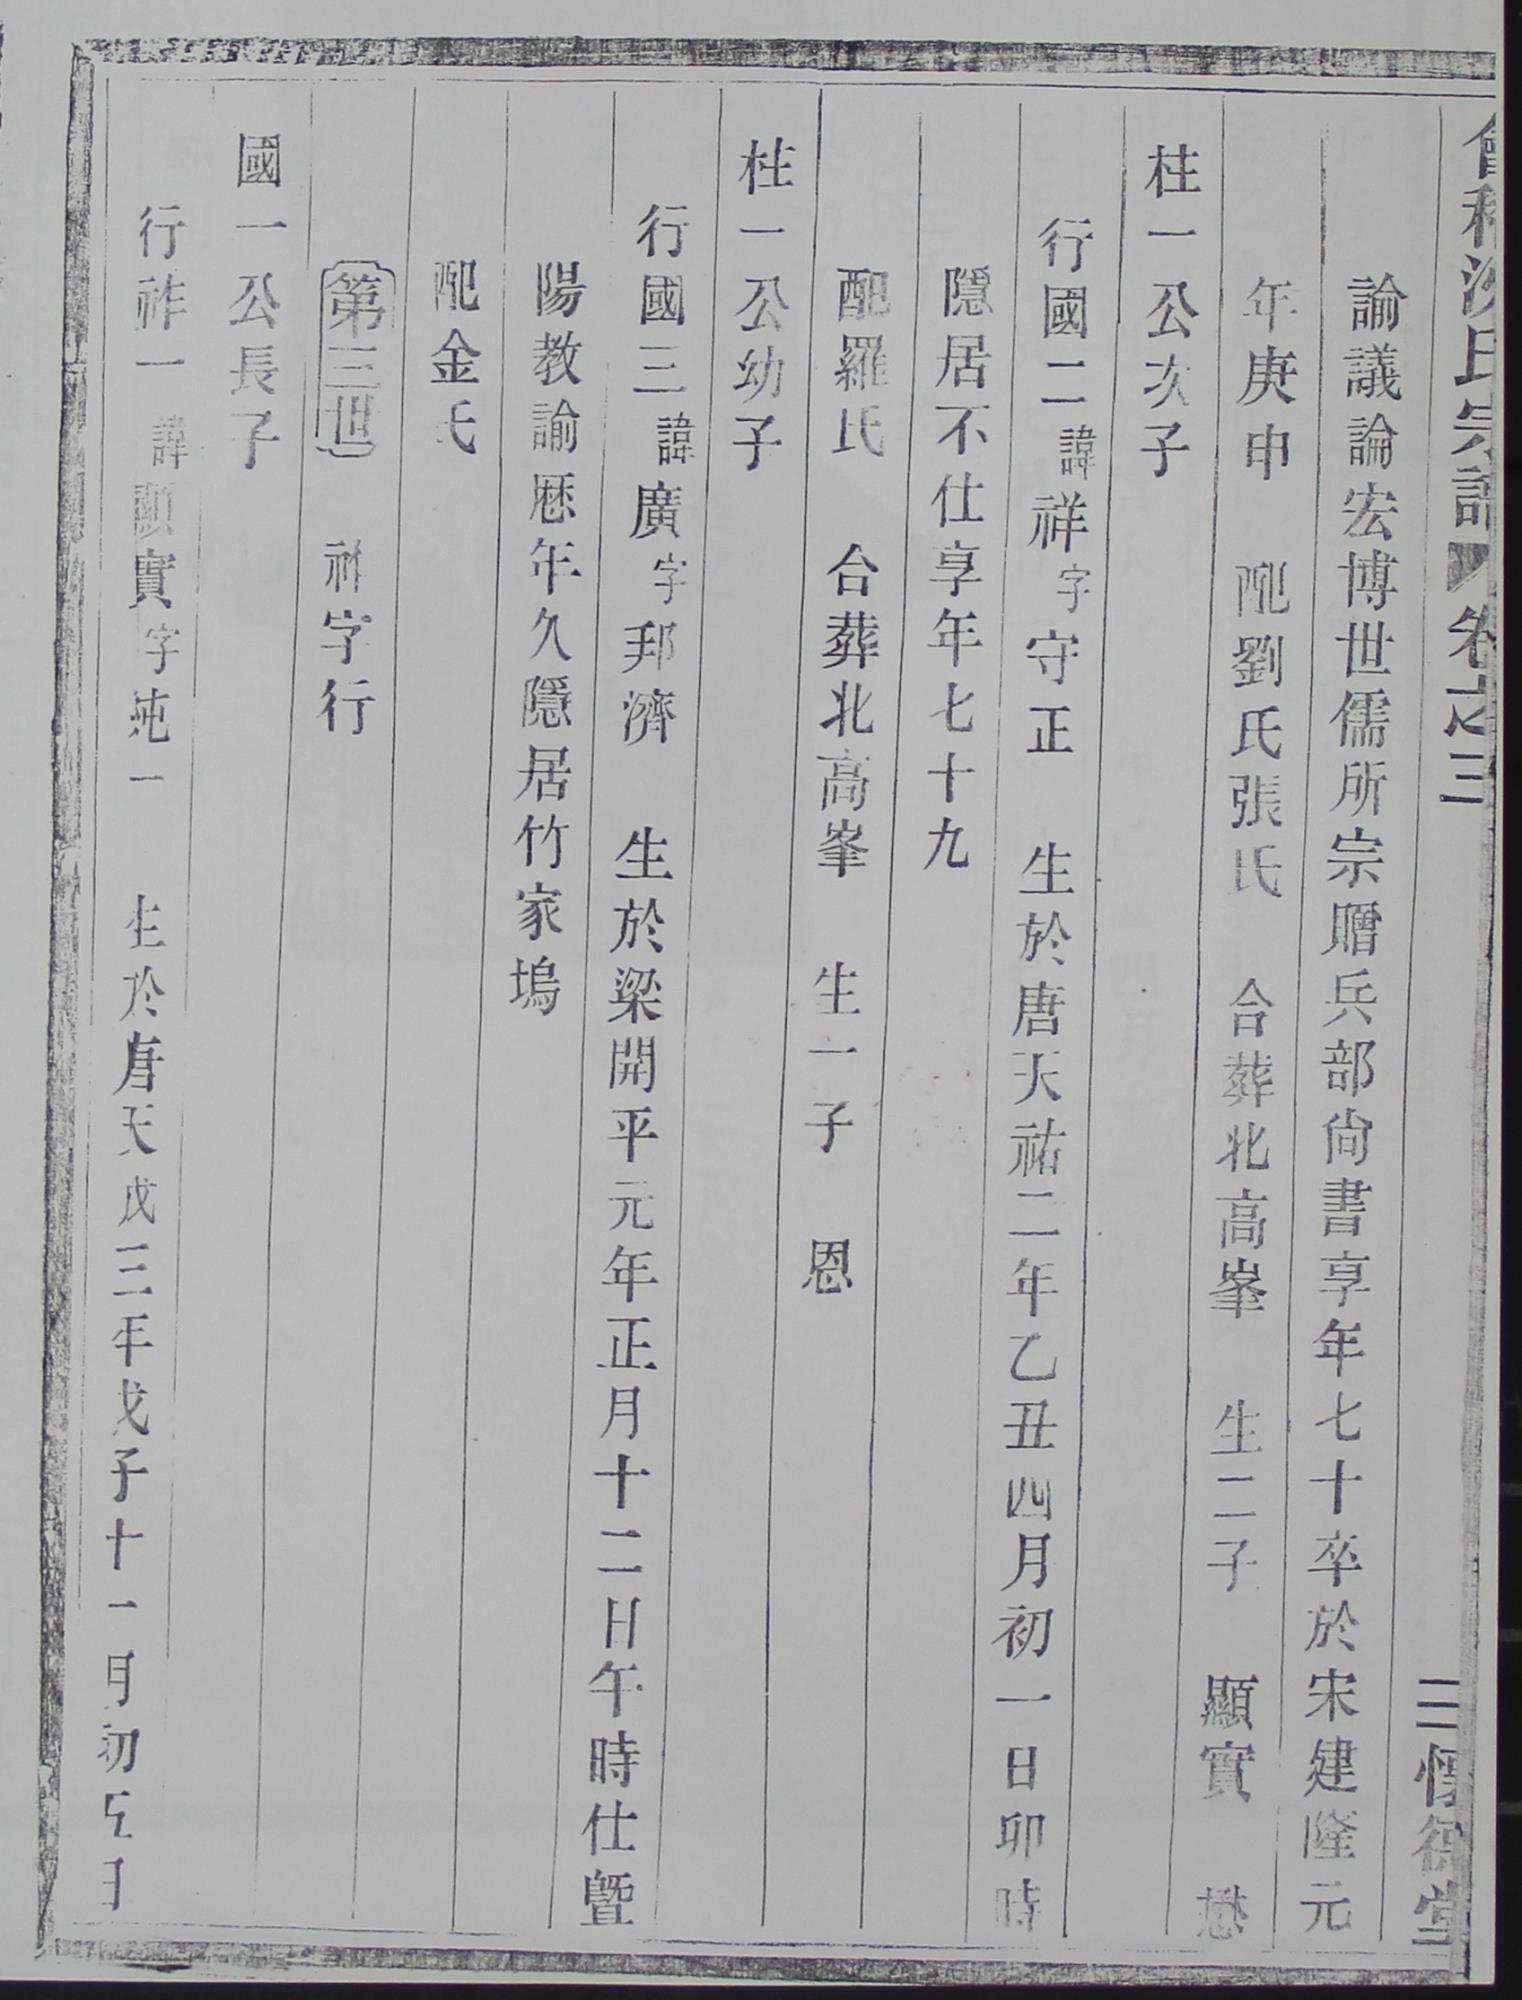 會稽沈氏宗譜 卷之三 三 懷德堂
諭議論宏博世儒所宗贈兵部尚書享年七十卒於宋建隆元
年庚申 配劉氏張氏 合葬北高峯 生二子 顯實 懋
柱一公次子
行國二諱祥字守正 生於唐天祐二年乙丑四月初一日卯時
隱居不仕享年七十九
配羅氏 合葬北高峯 生一子 恩
柱一公幼子
行國三諱廣字邦濟 生於梁開平元年正月十二日午時仕暨
陽教諭歷年久隱居竹家塢
配金氏
第三世 祚字行
國一公長子
行祚一諱顯實字純一 生於唐天成三年戊子十一月初五日